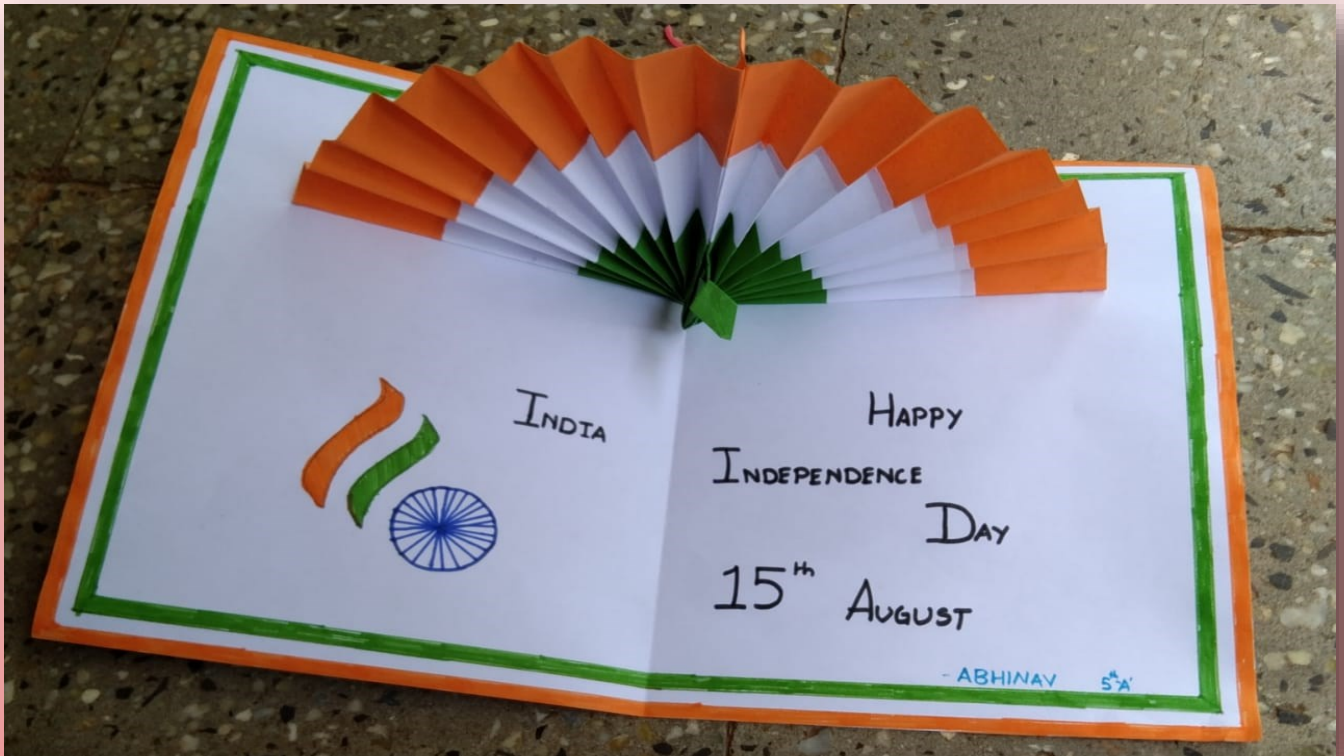 INDIA
HAPPY
INDEPENDENCE
DAY
15th AUGUST
- ABHINAV 5th 'A'